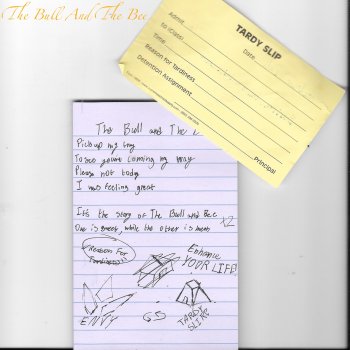 The Bull And The Bee
TARDY SLIP
Admit
to (Class)
Date
Time
Reason for Tardiness
Detention Assignment
Principal
The Bull and The
Pick up my
To see you're coming my way
Please not today
I was feeling great
It's the story of The Bull and Bee
One is sweet, while the other is mean
x2
Reason For
Tardiness
Enhance
YOUR LIFE!
ENVY
TARDY
SLIP